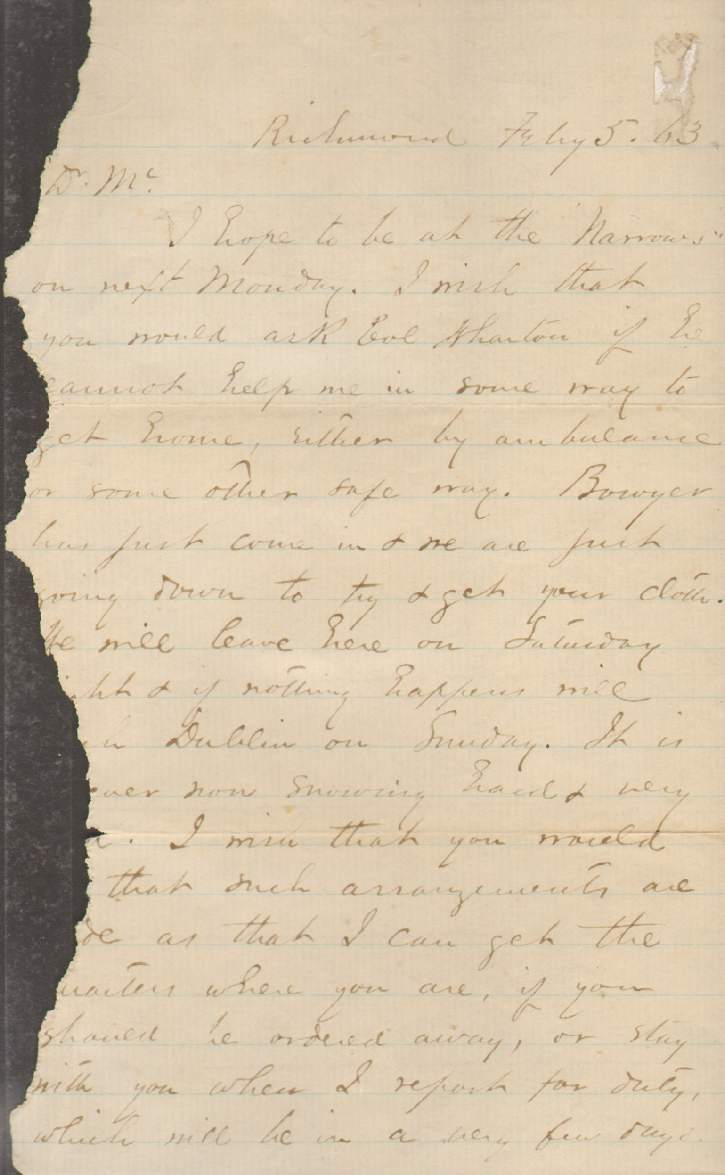 Richmond Feby 5. 63
Dr. Mc.
I hope to be at the "Narrows"
on next Monday. I wish that
you would ask Col Wharton if he
cannot help me in some way to
get home, either by ambulance
or some other safe way. Bowyer
has just come in & we are just
going down to try & get your cloth.
He will leave here on Saturday
ight & if nothing happens will
h Dublin on Sunday. It is
ever now snowing hard & very
I wish that you would
that such arrangements are
de as that I can get the
uarters where you are, if you
should be ordered away, or stay
with you when I report for duty,
which will be in a very few days.